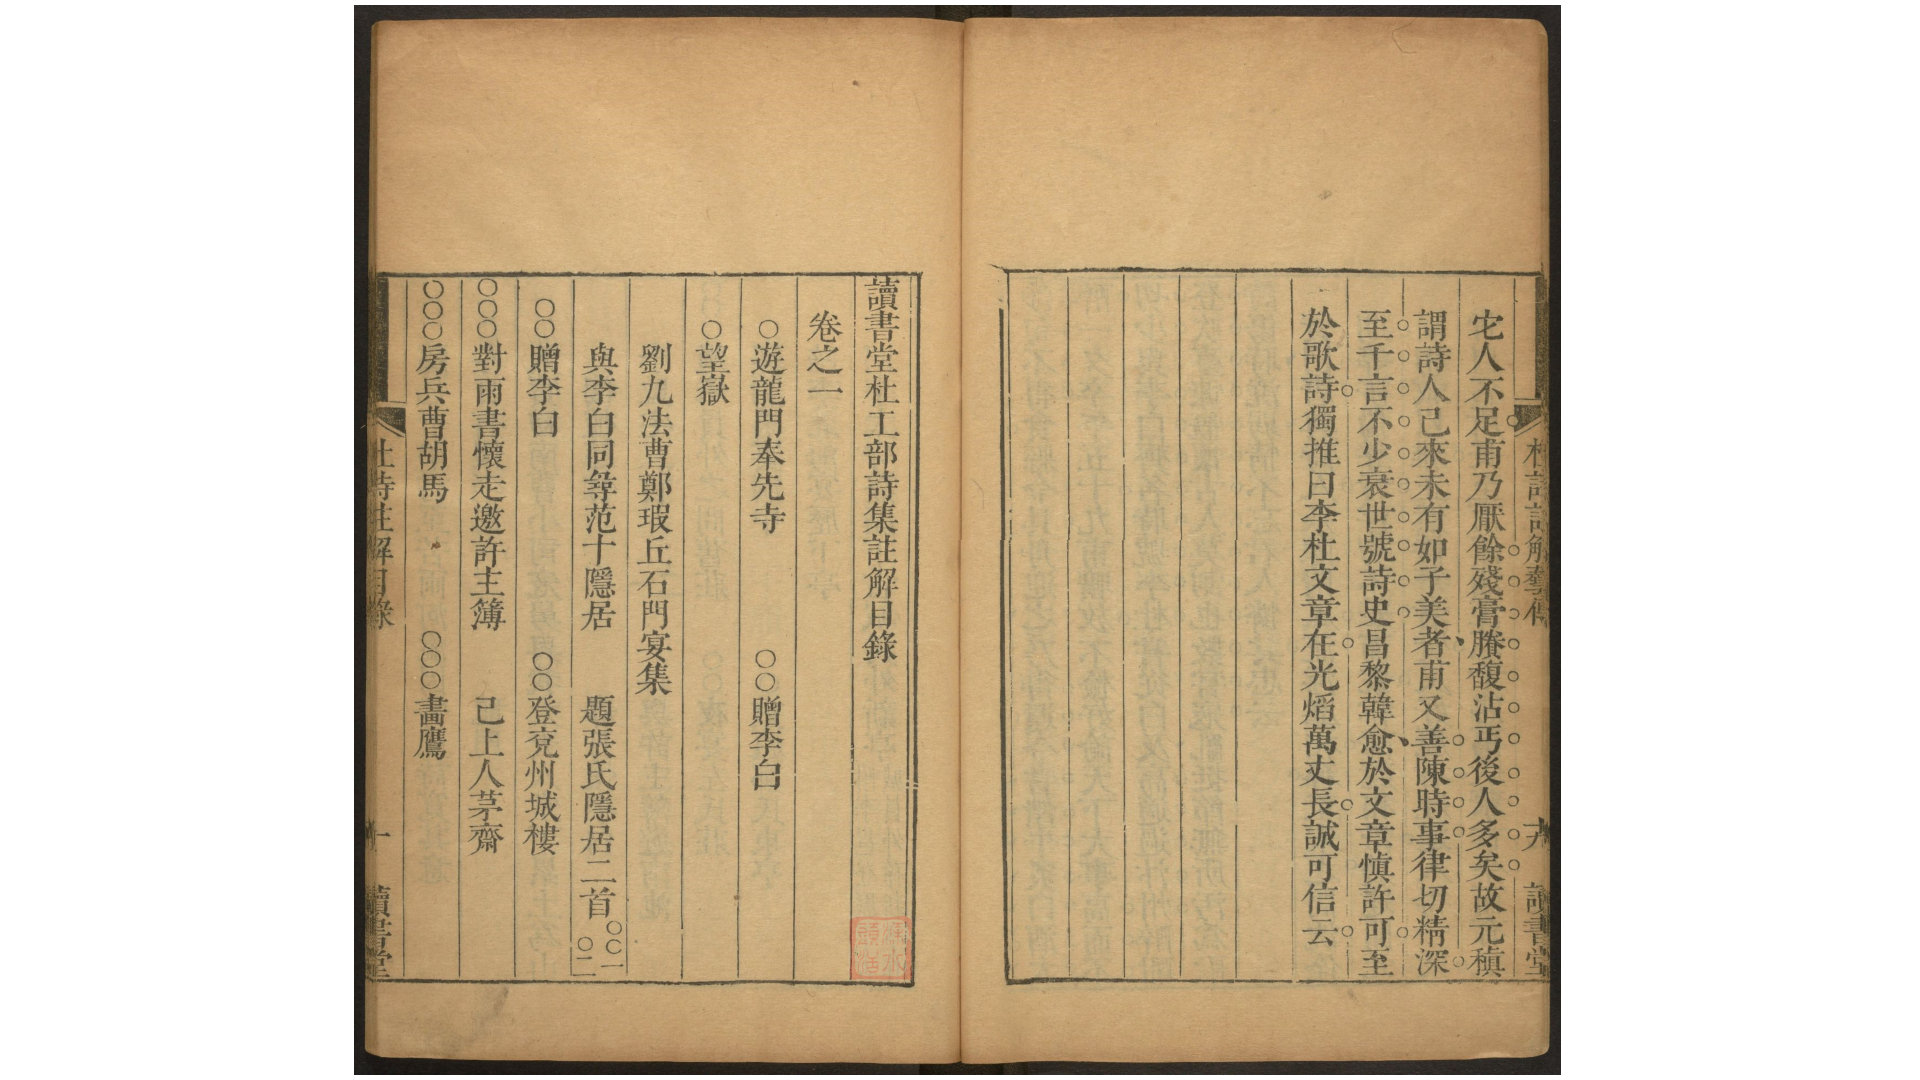 它人不足甫乃厭餘殘膏賸馥沾丐後人多矣故元稹
謂詩人已來未有如子美者甫又善陳時事律切精深
至千言不少衰世號詩史昌黎韓愈於文章慎許可至
於歌詩獨推曰李杜文章在光熖萬丈長誠可信云
讀書堂杜工部詩集註解目錄
卷之一
○遊龍門奉先寺 ○○贈李白
○望嶽
劉九法曹鄭瑕丘石門宴集
與李白同尋范十隱居 題張氏隱居二首○○一○二
○○贈李白 ○○登兗州城樓
○○○對雨書懷走邀許主簿 己上人茅齋
○○○房兵曹胡馬 ○○○畵鷹
杜詩註解目錄 一 讀書堂